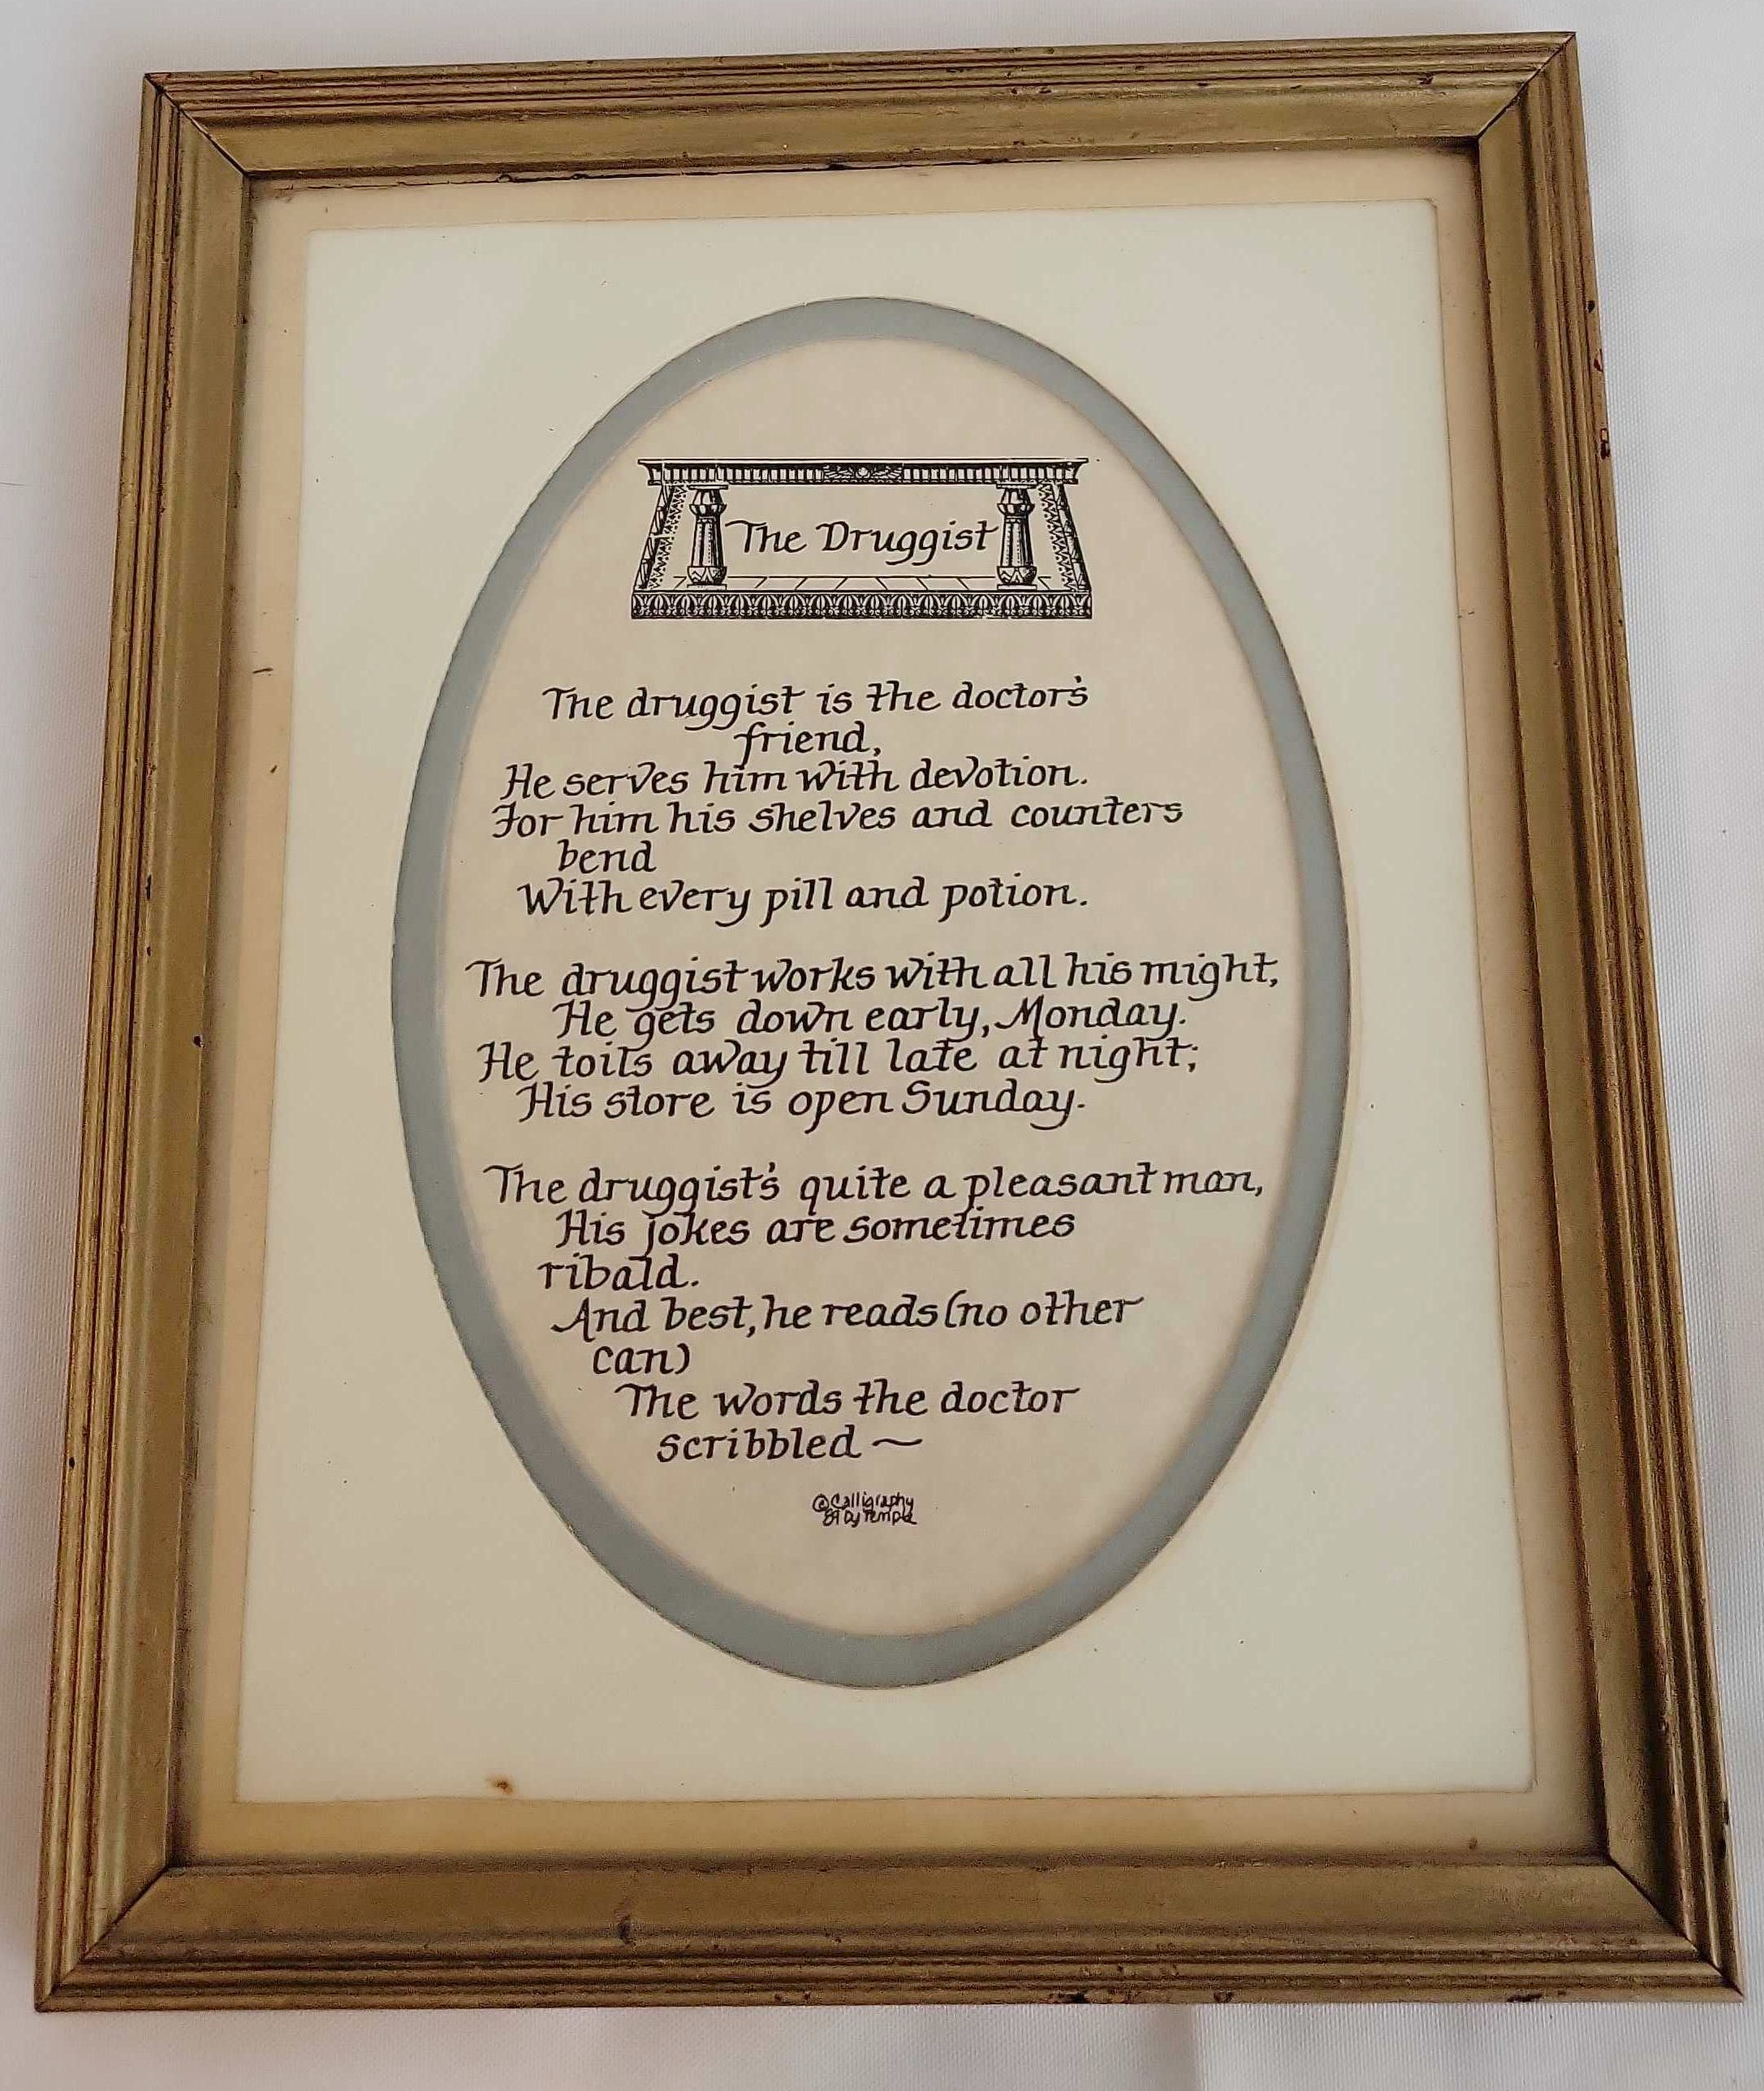 The Druggist
The druggist is the doctor's
friend,
He serves him with devotion.
For him his shelves and counters
bend
With every pill and potion.
The druggist works with all his might,
He gets down early, Monday.
He toils away till late at night;
His store is open Sunday.
The druggist's quite a pleasant man,
His jokes are sometimes
ribald.
And best, he reads (no other
can)
The words the doctor
scribbled ~
© Calligraphy
Temple